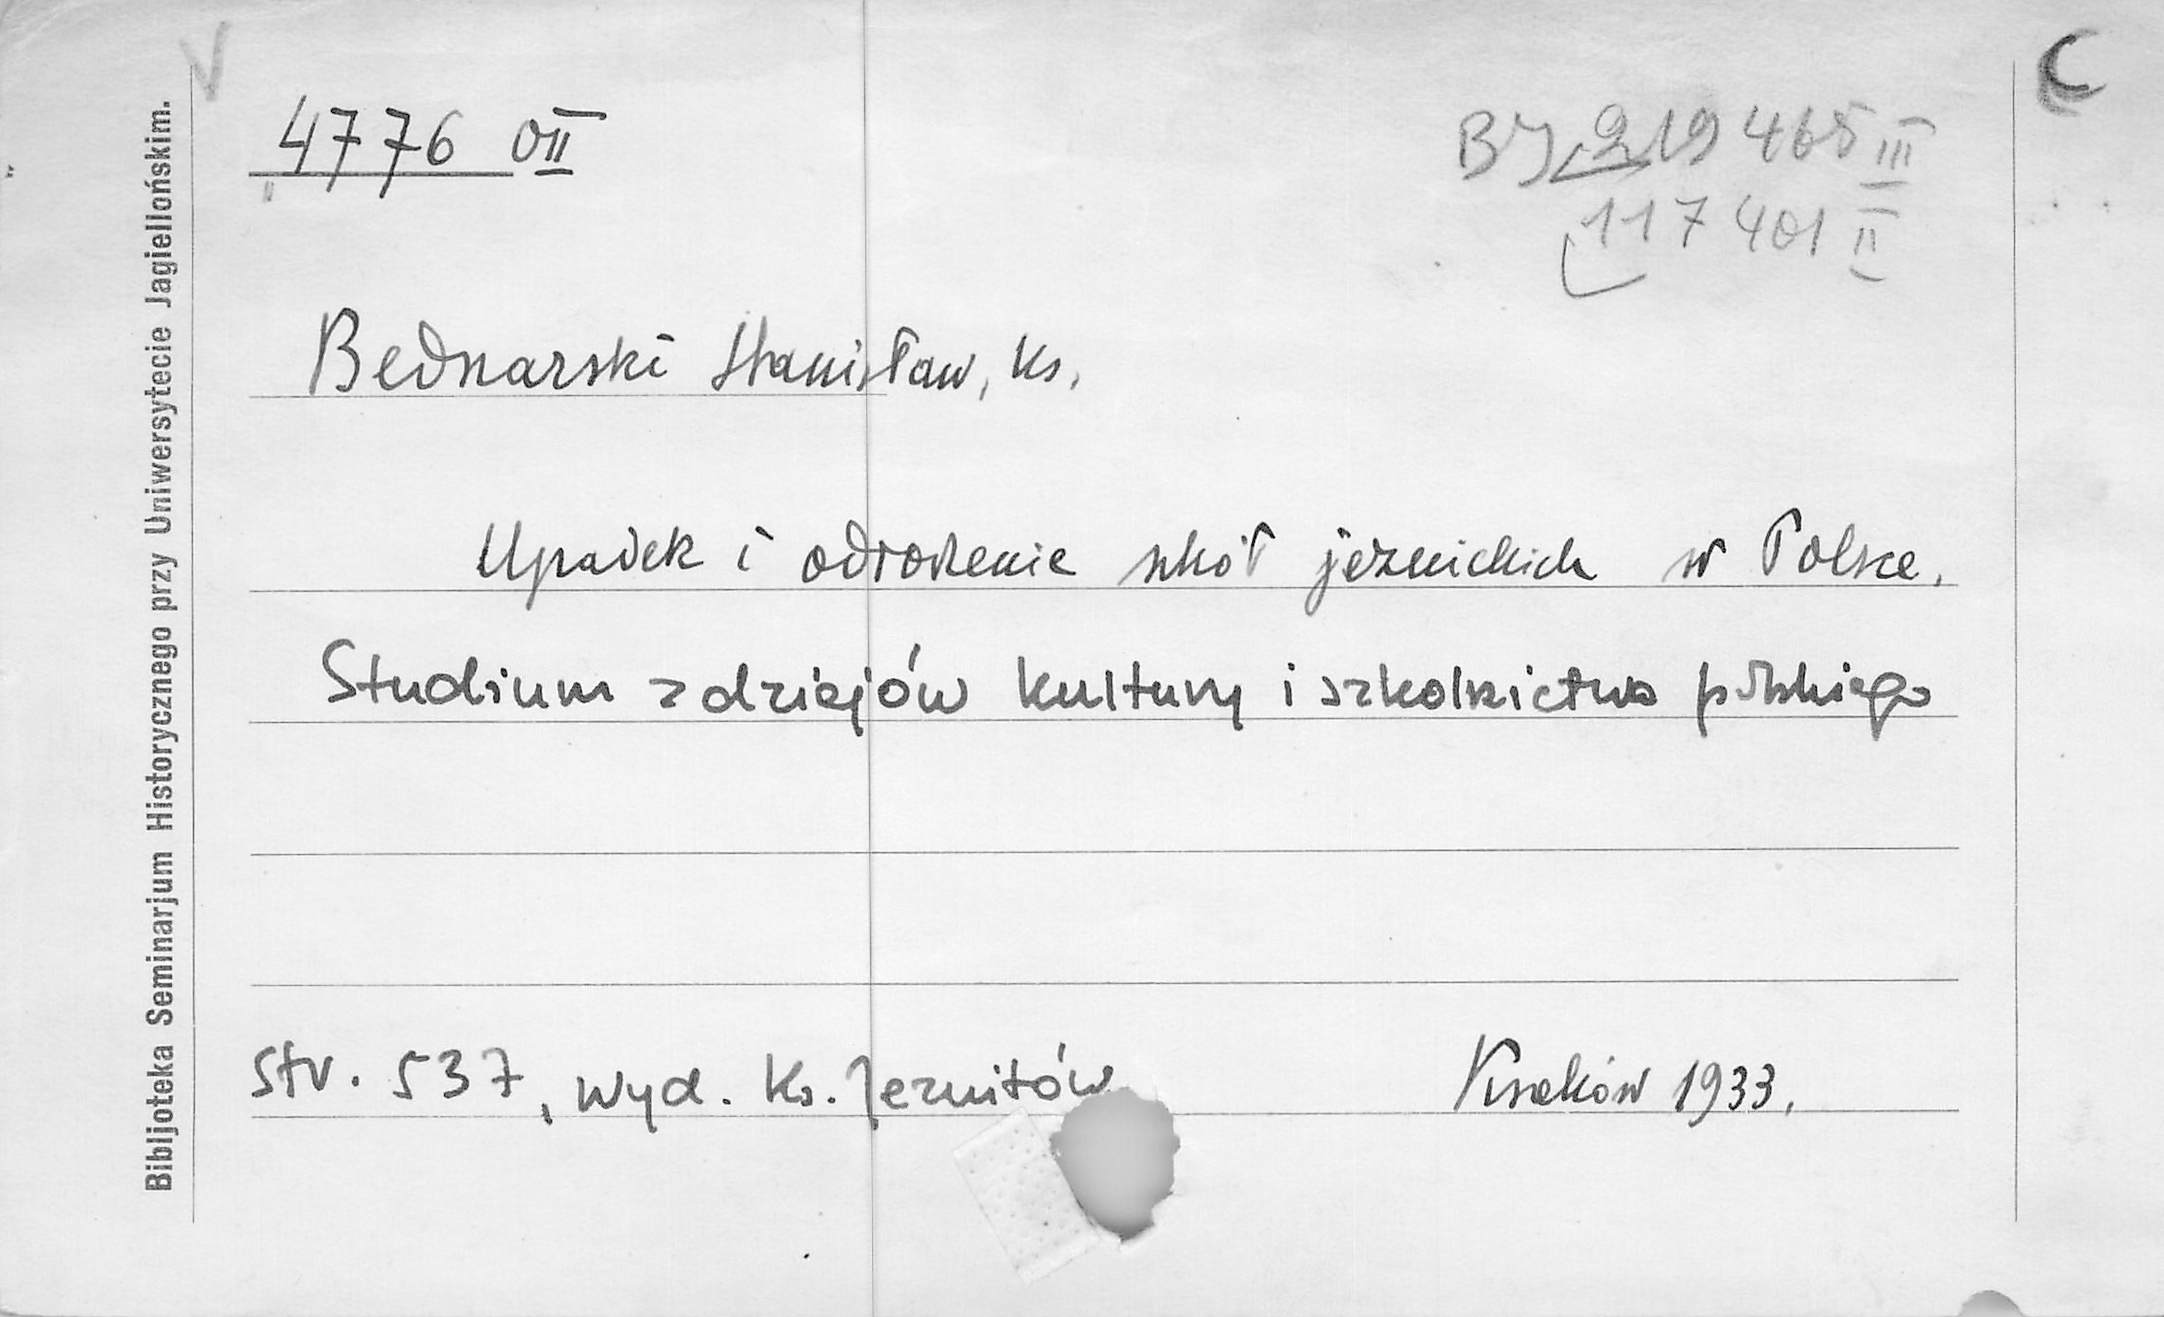 Bibljoteka Seminarjum Historycznego przy Uniwersytecie Jagiellońskim.
V
4776 VII
BJ 219 465 III
117 401 II
Bednarski Stanisław, Ks.
Upadek i odrodzenie szkół jezuickich w Polsce.
Studium z dziejów kultury i szkolnictwa polskiego
Str. 537, wyd. Ks. Jezuitów
Kraków 1933.